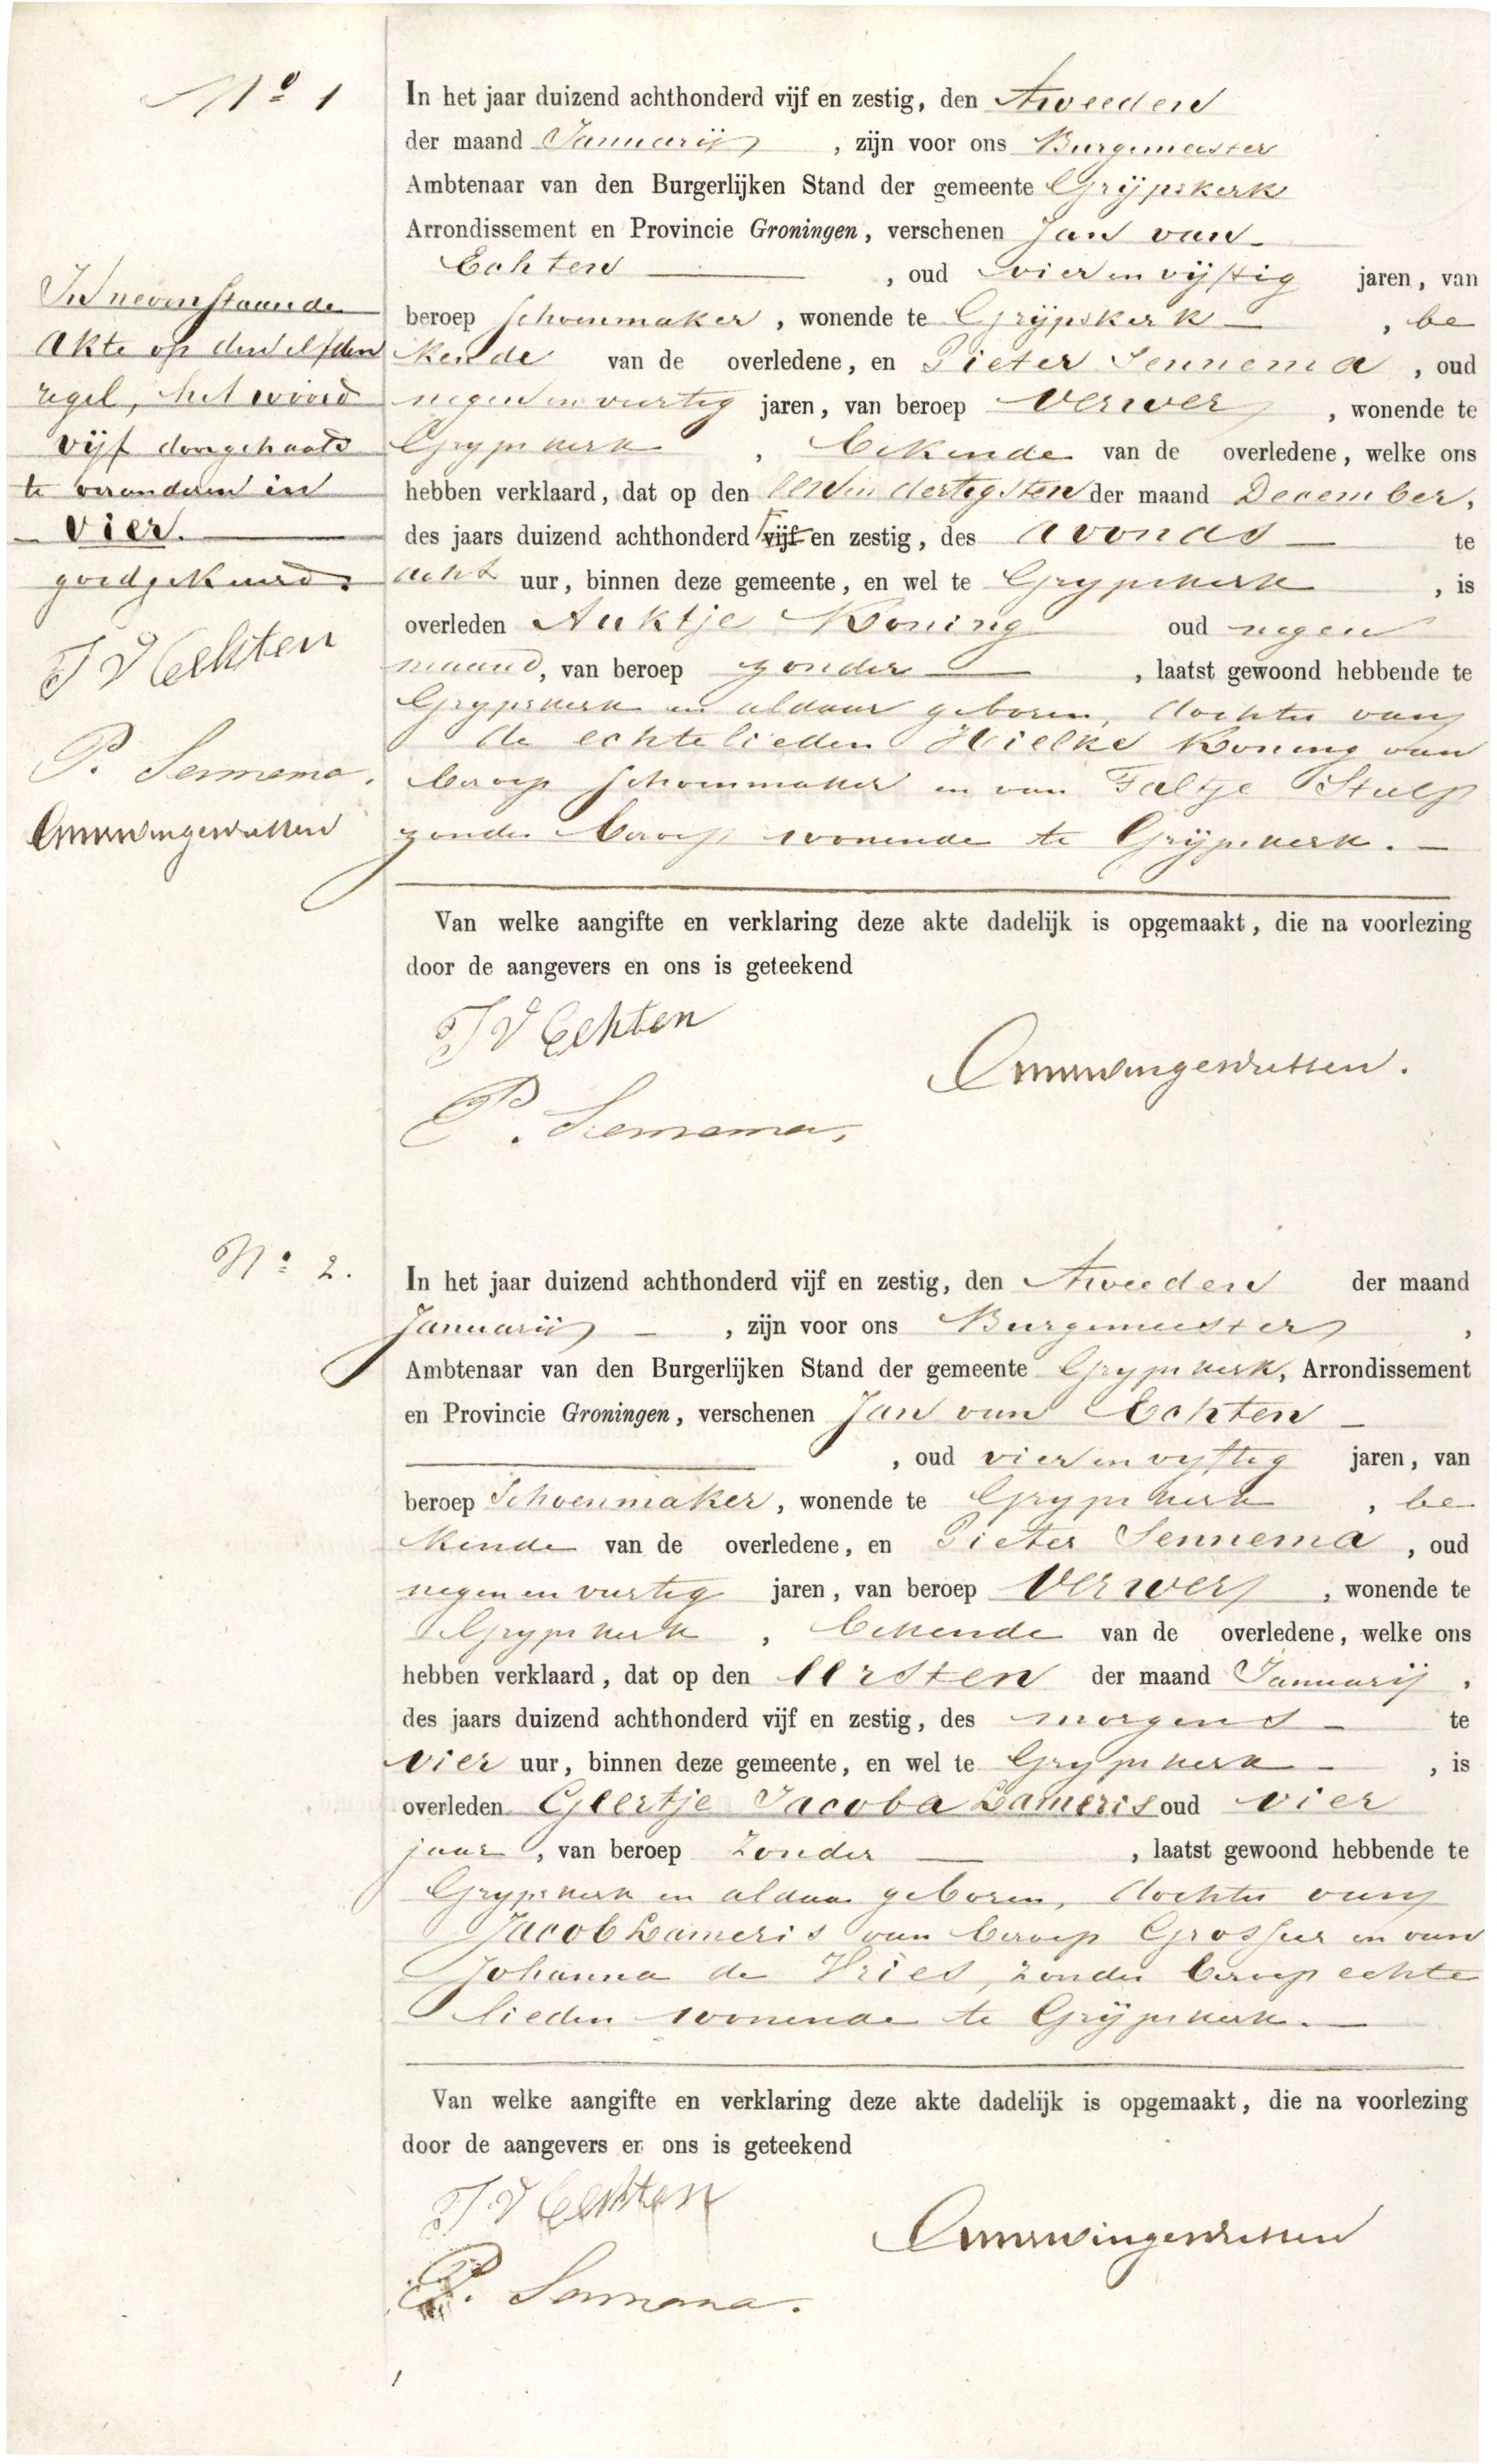 No 1
In het jaar duizend achthonderd vijf en zestig, den tweeden
der maand Januarij, zijn voor ons Burgemeester
Ambtenaar van den Burgerlijken Stand der gemeente Grijpskerk
Arrondissement en Provincie Groningen, verschenen Jan van
Echten, oud vier en vijftig jaren, van
beroep Schoenmaker, wonende te Grijpskerk, be
kende van de overledene, en Pieter Sennema, oud
negen en veertig jaren, van beroep Verwer, wonende te
Grijpskerk, bekende van de overledene, welke ons
hebben verklaard, dat op den een en dertigsten der maand December,
des jaars duizend achthonderd vijf en zestig, des avonds te
acht uur, binnen deze gemeente, en wel te Grijpskerk, is
overleden Auktje Koning oud negen
maand, van beroep zonder, laatst gewoond hebbende te
Grijpskerk en aldaar geboren, dochter van
de echtelieden Hielke Koning van
beroep Schoenmaker en van Faltje Stulp
zonder beroep wonende te Grijpskerk.
In nevenstaande
akte op den elfden
regel, het woord
vijf doorgehaald
te veranderen in
vier.
goedgekeurd.
J V Echten
P. Sennema.
Van welke aangifte en verklaring deze akte dadelijk is opgemaakt, die na voorlezing
door de aangevers en ons is geteekend
J V Echten
P. Sennema,
No 2.
In het jaar duizend achthonderd vijf en zestig, den tweeden der maand
Januarij, zijn voor ons Burgemeester,
Ambtenaar van den Burgerlijken Stand der gemeente Grijpskerk, Arrondissement
en Provincie Groningen, verschenen Jan van Echten
, oud vier en vijftig jaren, van
beroep Schoenmaker, wonende te Grijpskerk, be
kende van de overledene, en Pieter Sennema, oud
negen en veertig jaren, van beroep Verwer, wonende te
Grijpskerk, bekende van de overledene, welke ons
hebben verklaard, dat op den eersten der maand Januarij,
des jaars duizend achthonderd vijf en zestig, des morgens te
vier uur, binnen deze gemeente, en wel te Grijpskerk, is
overleden Geertje Jacoba Lameris oud vier
jaar, van beroep zonder, laatst gewoond hebbende te
Grijpskerk en aldaar geboren, dochter van
Jacob Lameris van beroep Grossier en van
Johanna de Vries, zonder beroep echte
lieden wonende te Grijpskerk.
Van welke aangifte en verklaring deze akte dadelijk is opgemaakt, die na voorlezing
door de aangevers en ons is geteekend
J V Echten
P. Sennema.